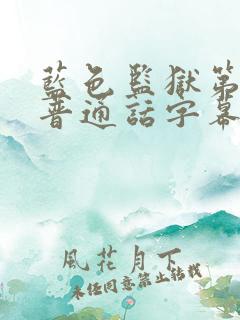 藍色監獄第
普通話字幕
風花月下
未经同意禁止转载